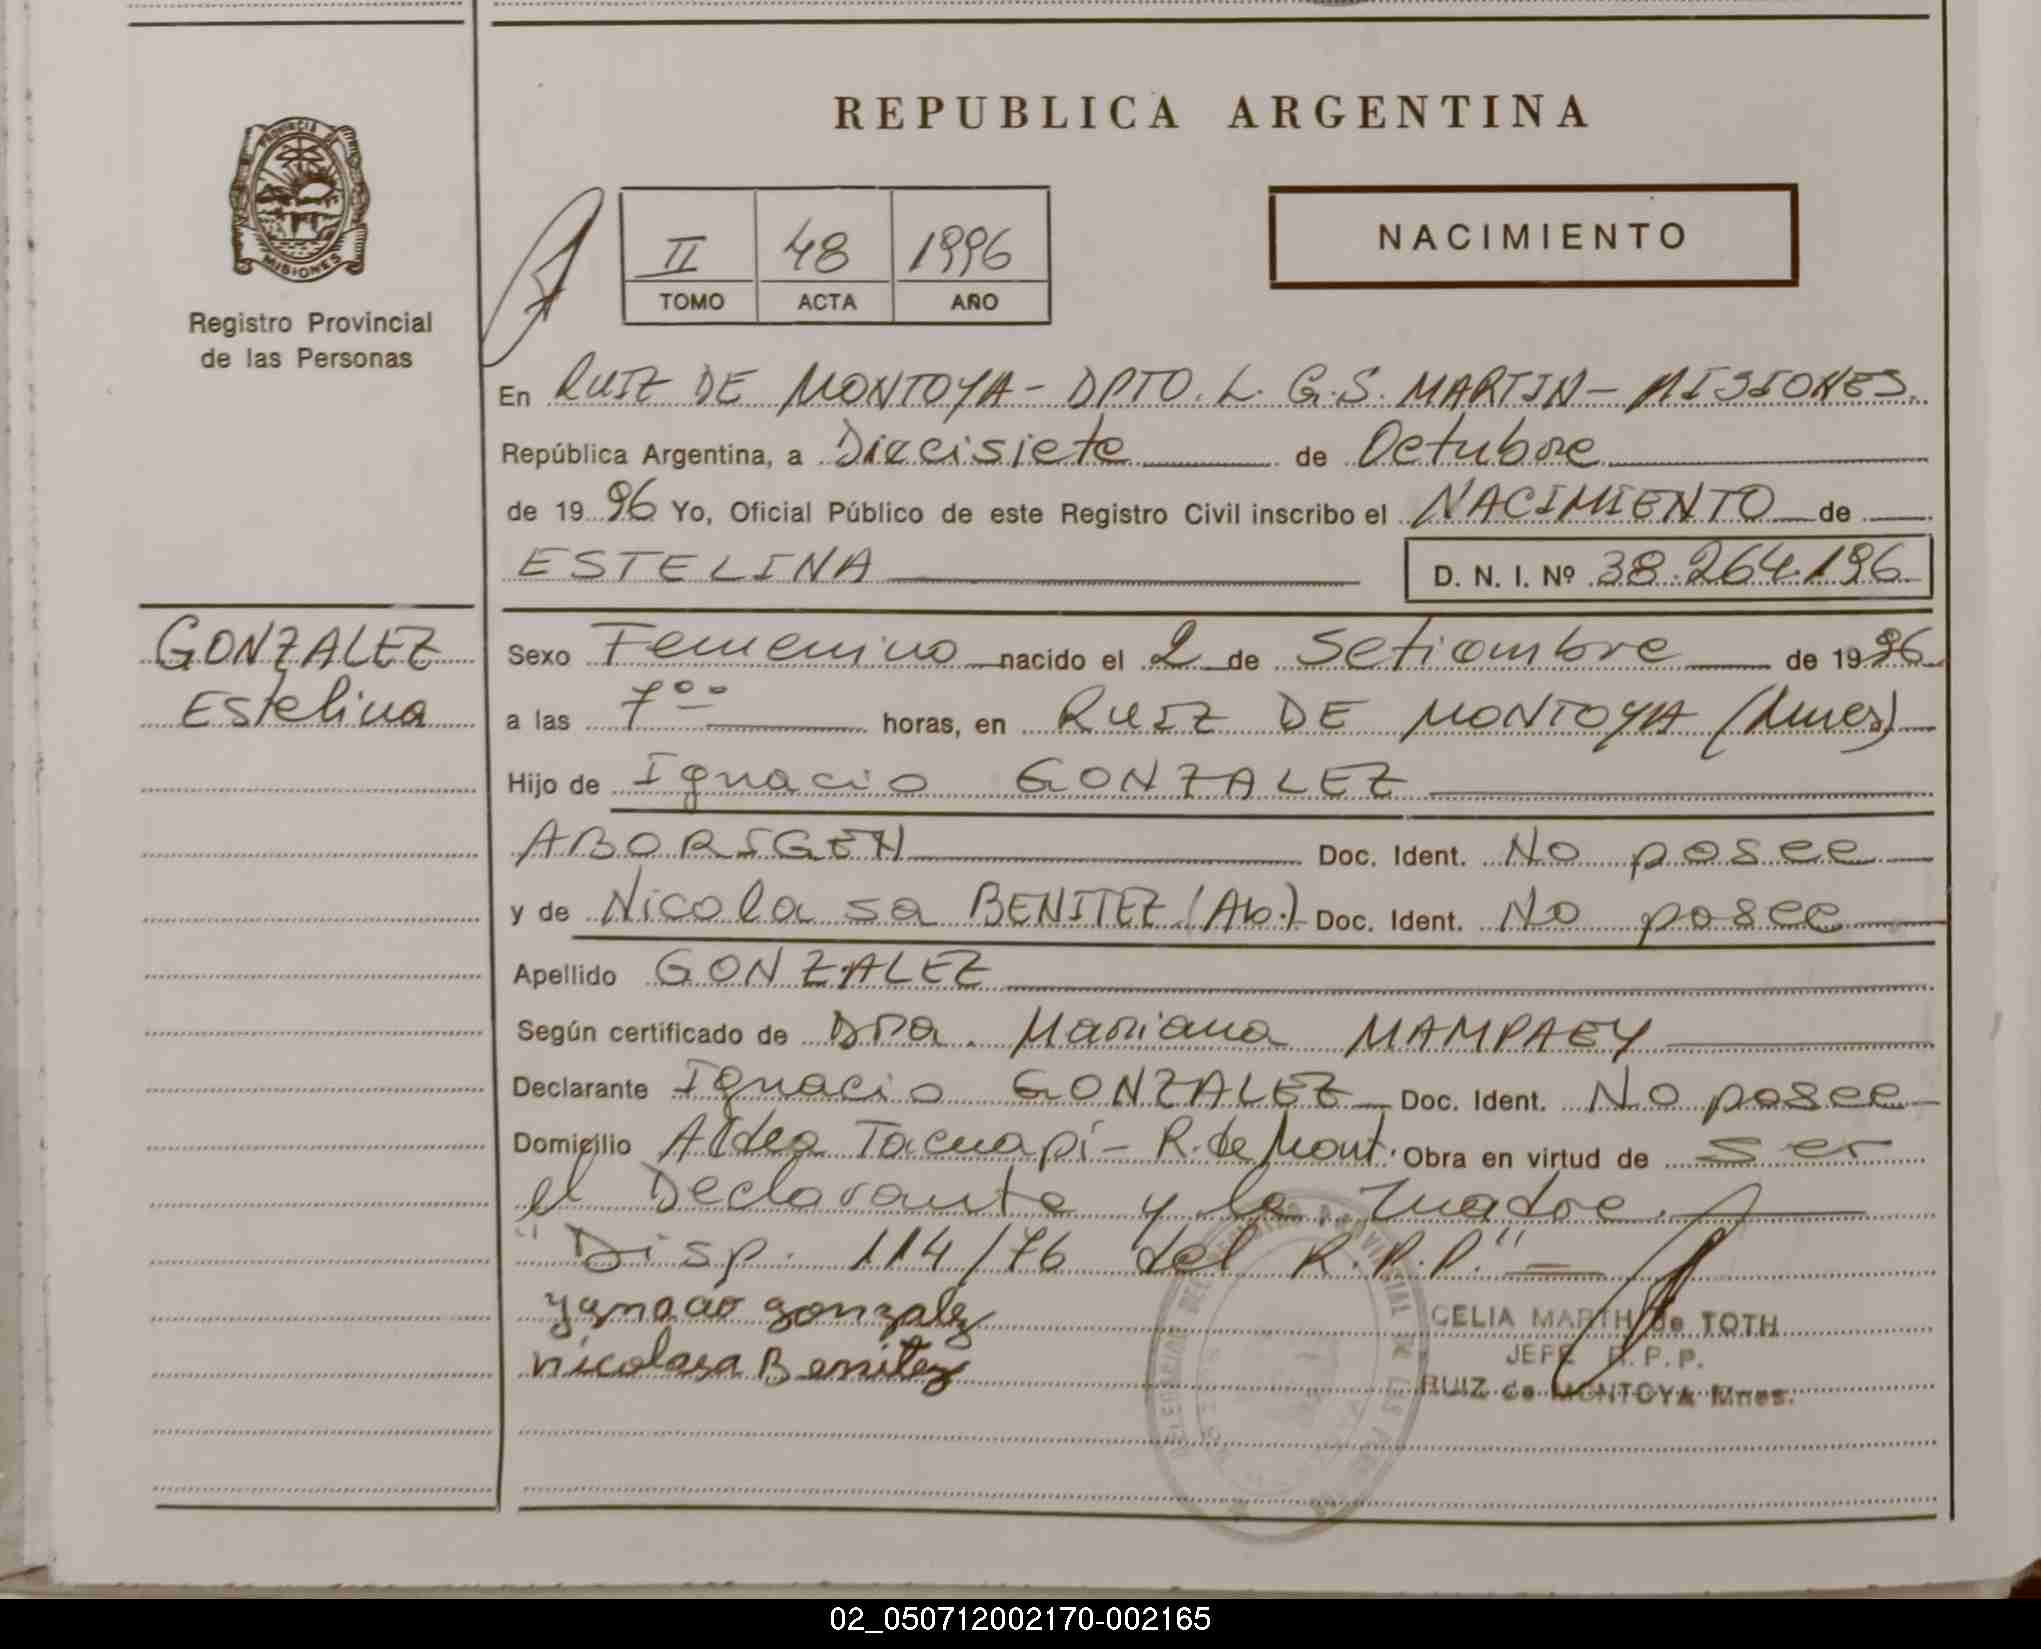 REPUBLICA ARGENTINA
PROVINCIA DE MISIONES
Registro Provincial
de las Personas
II 48 1996
TOMO ACTA AÑO
NACIMIENTO
En RUIZ DE MONTOYA - DPTO. L. G. S. MARTIN - MISIONES.
República Argentina, a Diecisiete de Octubre
de 1996 Yo, Oficial Público de este Registro Civil inscribo el NACIMIENTO de
ESTELINA D. N. I. Nº 38.264.196
GONZALEZ
Estelina
Sexo Femenino nacido el 2 de Setiembre de 1996
a las 7°° horas, en RUIZ DE MONTOYA (Mnes)
Hijo de Ignacio GONZALEZ
ABORIGEN Doc. Ident. No posee
y de Nicolasa BENITEZ (Ab.) Doc. Ident. No posee
Apellido GONZALEZ
Según certificado de Dra. Mariana MAMPAEY
Declarante Ignacio GONZALEZ Doc. Ident. No posee
Domicilio Aldea Tacuapi - R. de Mont. Obra en virtud de ser
el Declarante y la madre.
"Disp. 114/76 del R.P.P."
Ygnacio gonzalez
nicolasa Benitez
CELIA MARTH de TOTH
JEFE R.P.P.
RUIZ de MONTOYA Mnes.
02_050712002170-002165